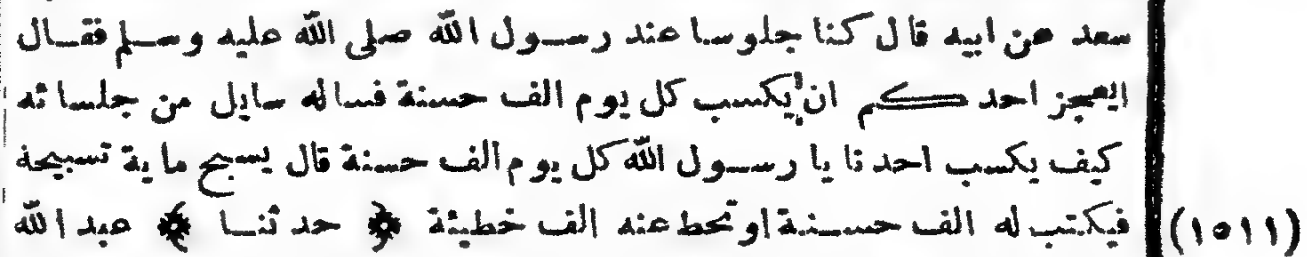 سعد عن ابيه قال كنا جلوسا عند رسول الله صلى الله عليه وسلم فقال
ايعجز احدكم ان يكسب كل يوم الف حسنة فساله سايل من جلسائه
كيف يكسب احدنا يا رسول الله كل يوم الف حسنة قال يسبح ماية تسبيحة
فيكتب له الف حسنة او تحط عنه الف خطيئة ﴿ حدثنا ﴾ عبد الله (١٥١١)